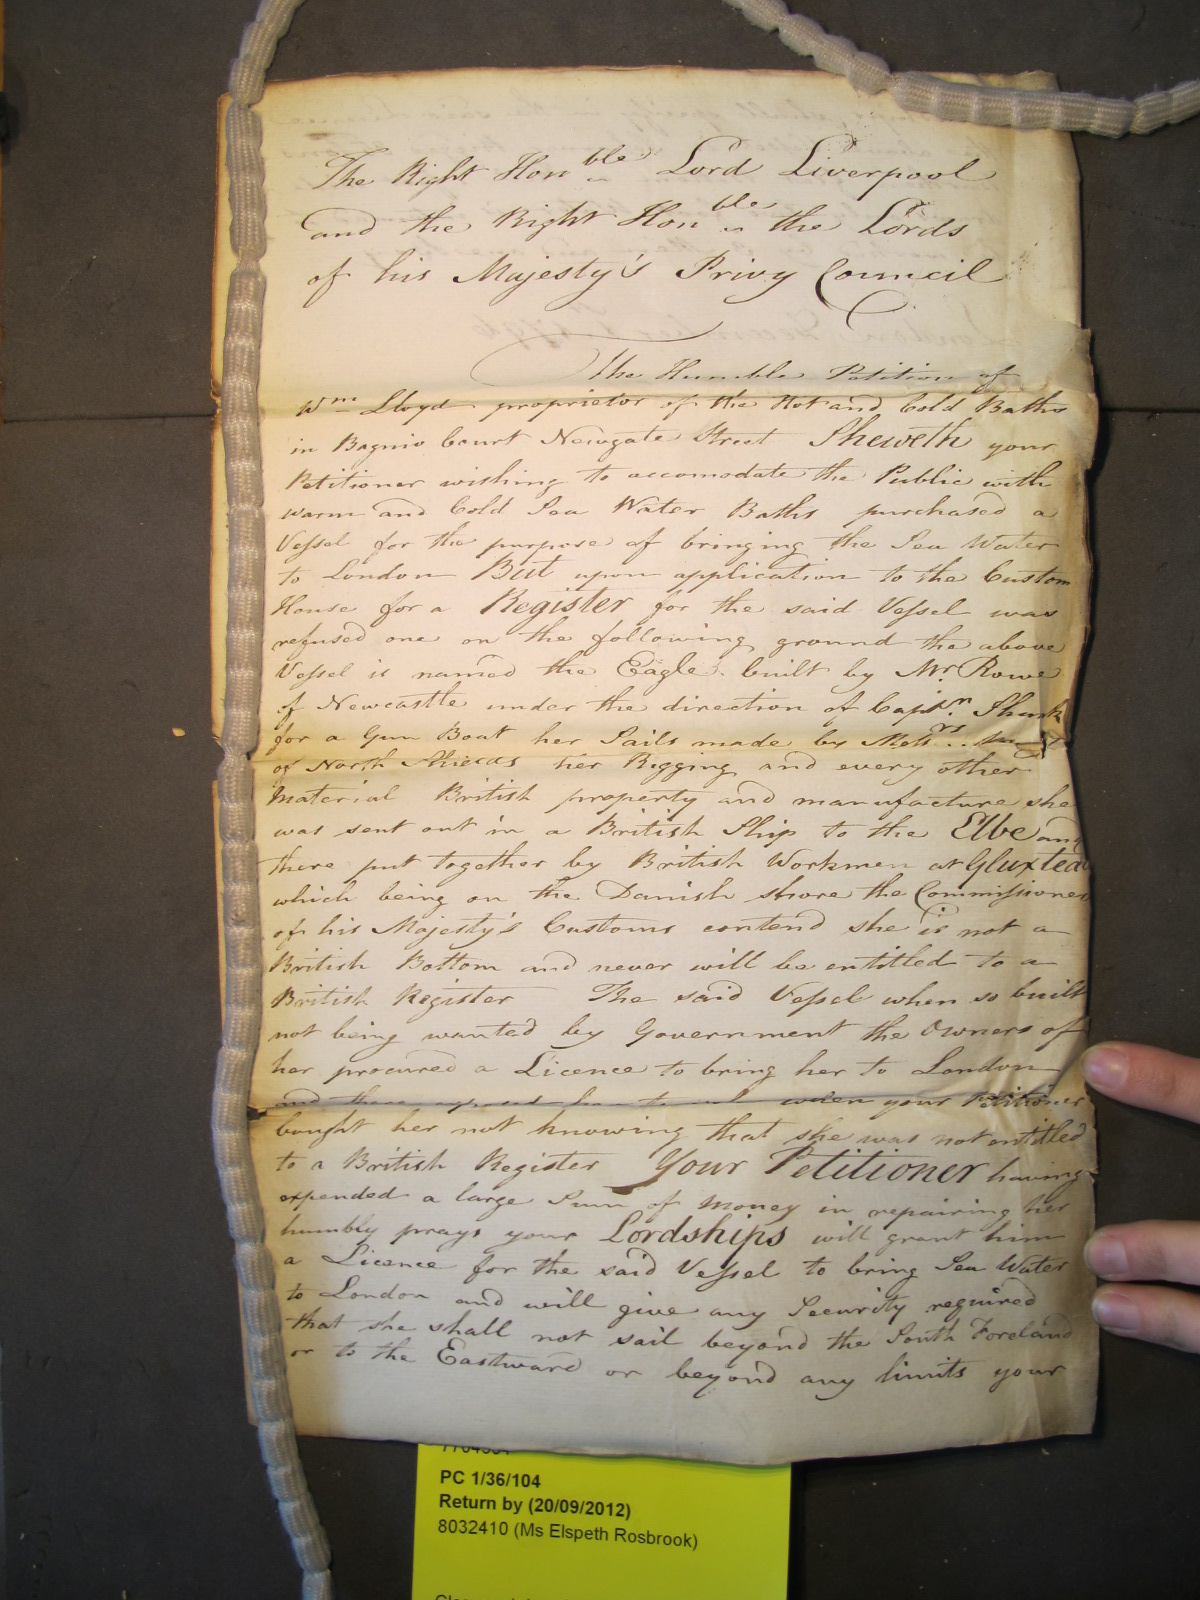 The Right Honble Lord Liverpool
and the Right Honble the Lords
of his Majesty's Privy Council
The Humble Petition of
Wm Lloyd proprietor of the Hot and Cold Baths
in Bagnio Court Newgate Street Sheweth your
Petitioner wishing to accomodate the Public with
warm and Cold Sea Water Baths purchased a
Vessel for the purpose of bringing the Sea Water
to London But upon application to the Custom
House for a Register for the said Vessel was
refused one on the following ground the above
Vessel is named the Eagle built by Mr. Rowe
of Newcastle under the direction of Captn. Shank
for a Gun Boat her Sails made by Messrs..
of North Shields her Rigging and every other
Material British property and manufacture she
was sent out in a British Ship to the Elbe and
there put together by British Workmen at Gluxtea
which being on the Danish shore the Commissioners
of his Majesty's Customs contend she is not a
British Bottom and never will be entitled to a
British Register The said Vessel when so built
not being wanted by Government the Owners of
her procured a Licence to bring her to London
and there exposed her to sale when your Petitioner
bought her not knowing that she was not entitled
to a British Register Your Petitioner having
expended a large Sum of Money in repairing her
humbly prays your Lordships will grant him
a Licence for the said Vessel to bring Sea Water
to London and will give any Security required
that she shall not sail beyond the South Foreland
or to the Eastward or beyond any limits your
PC 1/36/104
Return by (20/09/2012)
8032410 (Ms Elspeth Rosbrook)